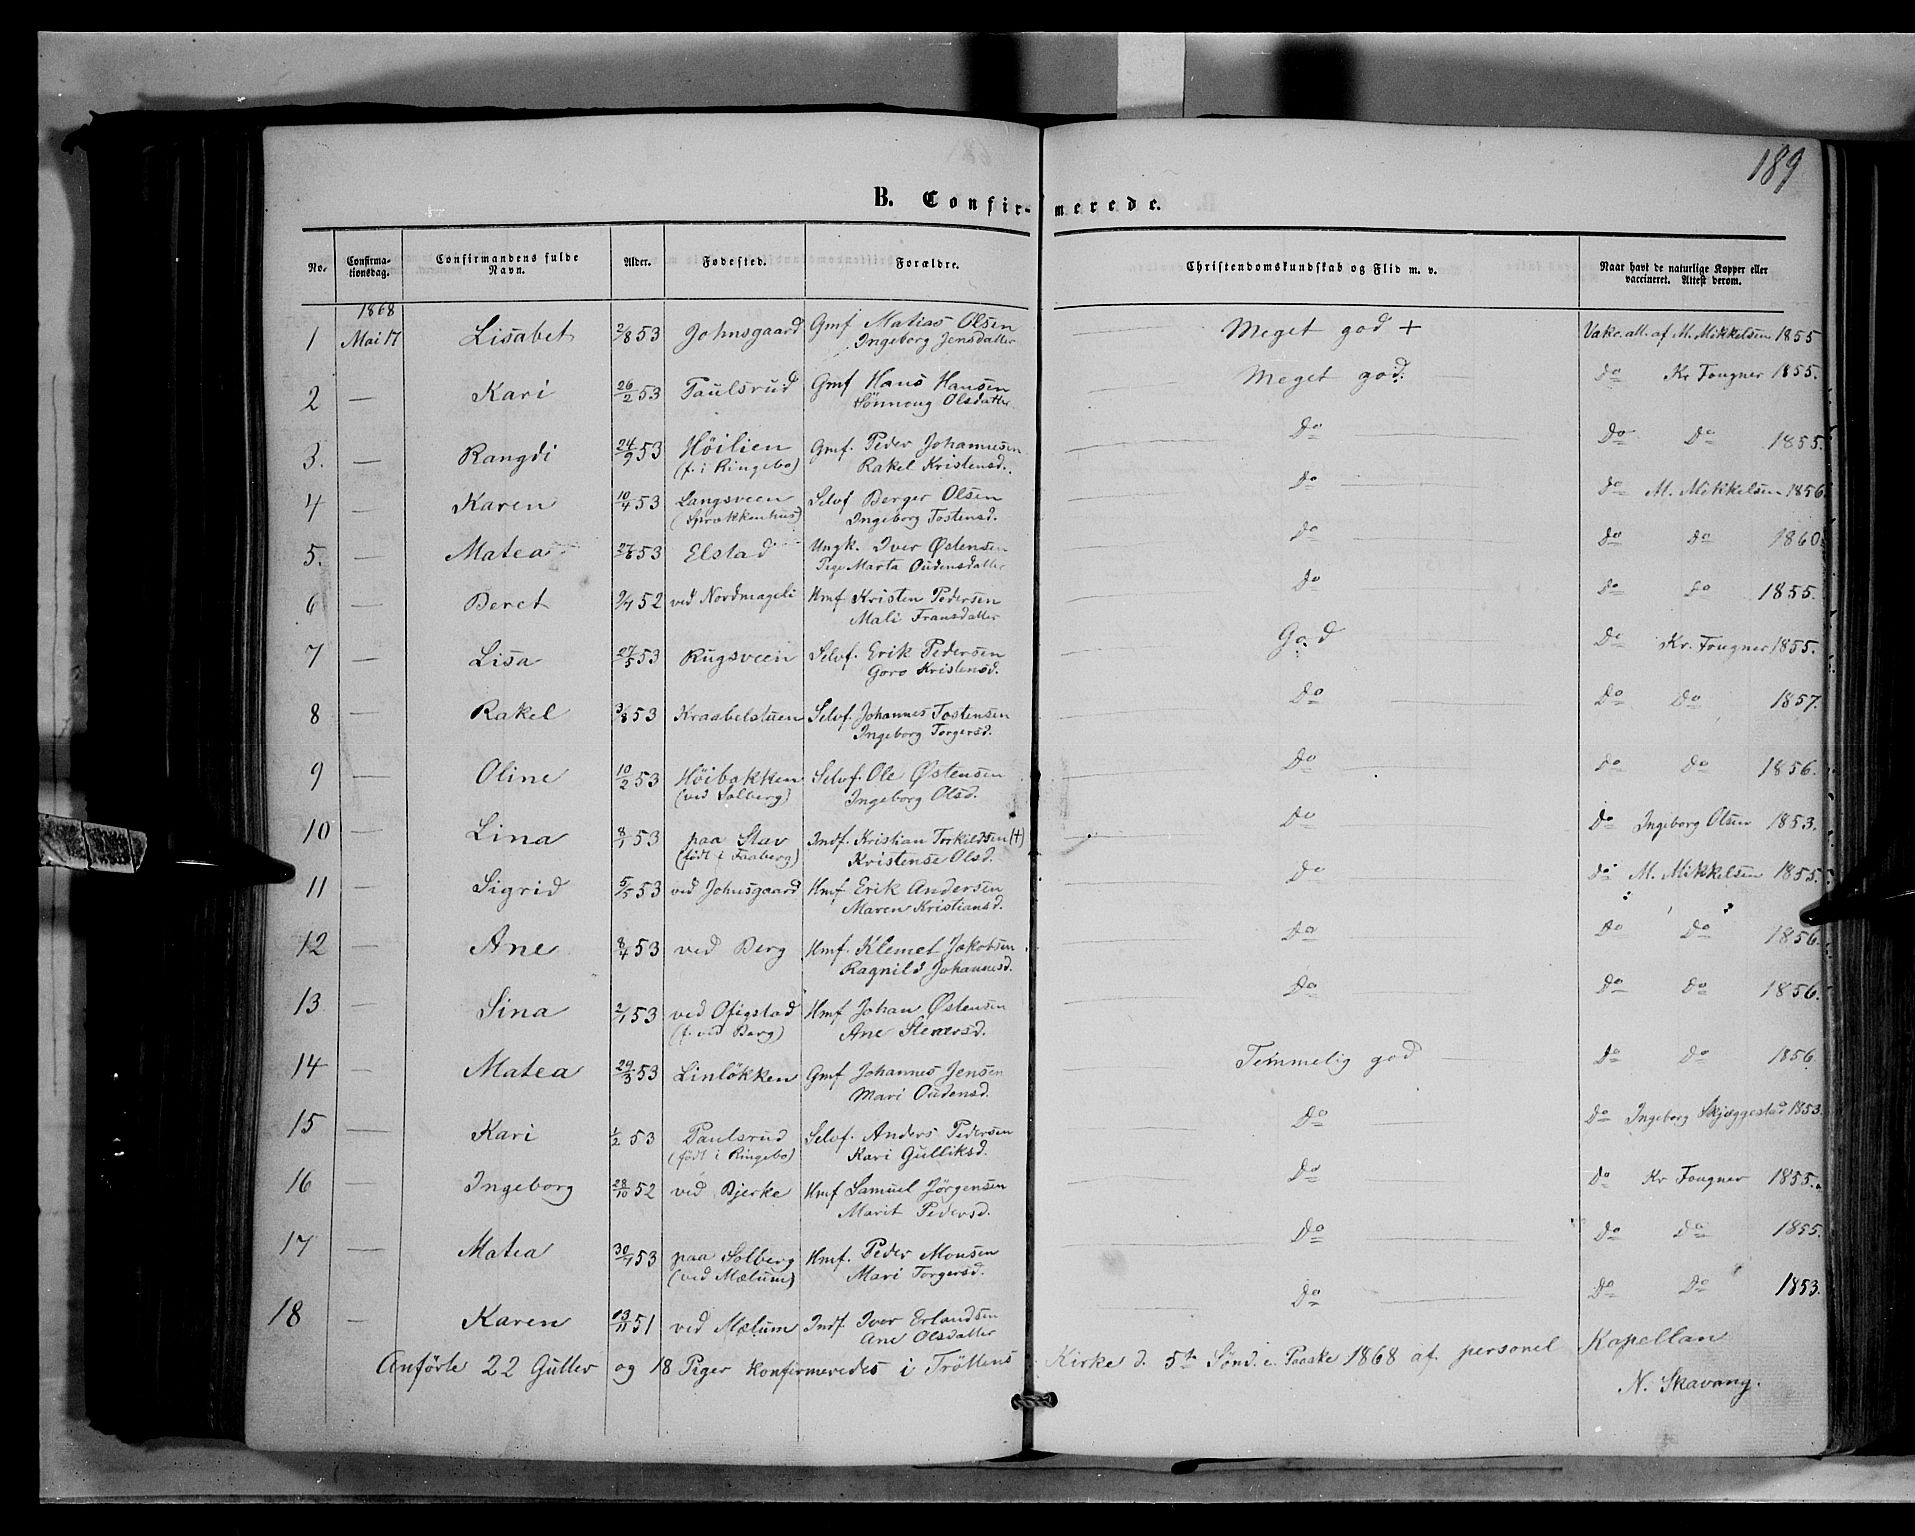 189
B. Confir- merede.
No. Confirma-tionsdag. Confirmandens fulde Navn. Alder. Fødested. Forældre. Christendomskundskab og Flid m. v. Naar havt de naturlige Kopper eller vaccineret. Attest derom.
1868
1 Mai 17 Lisabet 2/8 53 Johnsgaard Gmf Matias Olsen Meget god + Vakc. att. af M. Mikkelsen 1855
Ingeborg Jensdatter
2 — Kari 26/2 53 Paulsrud Gmf Hans Hansen Meget god. Do Kr Fougner 1855.
Sönnoug Olsdatter
3. — Rangdi 24/9 53 Höilien Gmf. Peder Johannesen Do Do Do 1855.
(f. i Ringebo) Rakel Kristensd.
4 — Karen 10/4 53 Langsveen Selvf Berger Olsen Do Do M. Mikkelsen 1856.
(Sprækkenhus) Ingeborg Tostensd.
5. — Matea 53 Elstad Ungk. Iver Østensen Do Do Do 1860
Pige Marta Oudensdatter
6 — Beret 9/4 52 ved Nordmageli Hmf Kristen Pedersen Do Do Do 1855.
Mali Fransdatter
7 — Lisa 27/5 53 Rugsveen Selvf. Erik Pedersen God Do Kr. Fougner 1855.
Goro Kristensd.
8 — Rakel 3/8 53 Kraabelstuen Selvf. Johannes Tostensen Do Do Do 1857.
Ingeborg Torgersd.
9 — Oline 10/2 53 Höibakken Selvf. Ole Østensen Do Do Do 1856.
(ved Solberg) Ingeborg Olsd.
10 — Lina 8/1 53 paa Stav Indf. Kristian Torkildsen (+) Do Do Ingeborg Olsen 1853.
(födt i Faaberg) Kristense Olsd.
11 — Sigrid 5/5 53 ved Johnsgaard Hmf Erik Andersen Do Do M. Mikkelsen 1855.
Maren Kristiansd.
12 — Ane 8/4 53 ved Berg Hmf. Klemet Jakobsen Do Do Do 1856.
Ragnild Johannesd.
13 — Sina 2/1 53 ved Ofigstad Hmf Johan Østensen Do Do Do 1856.
(f. ved Berg) Ane Stenersd.
14 — Matea 29/3 53 Linlökken Gmf Johannes Jensen Temmelig god Do Do 1856.
Mari Oudensd.
15 — Kari 1/2 53 Paulsrud Selvf. Anders Pedersen Do Do Ingeborg Skjæggestad 1853.
(födt i Ringebo) Kari Gulliksd.
16 — Ingeborg 28/10 52 ved Bjerke Hmf Samuel Jörgensen Do Do Kr Fougner 1855.
Marit Pedersd.
17 — Matea 53 paa Solberg Hmf. Peder Monsen Do Do Do 1855.
(ved Mælum) Mari Torgersd.
18 — Karen 13/11 51 ved Mælum Indf. Iver Erlandsen Do Do Do 1853.
Ane Olsdatter
Anförte 22 Gutter og 18 Piger konfirmeredes i Tröttens Kirke d. 5te Sönd. e. Paaske 1868 af personel Kapellan
N. Skavang.